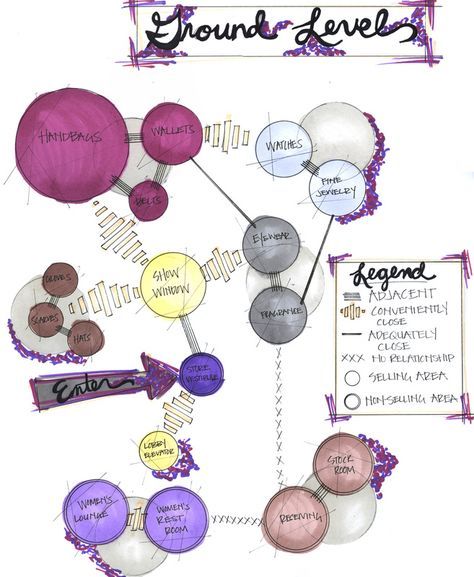 Ground Levels
HANDBAGS
WALLETS
BELTS
WATCHES
FINE
JEWELRY
EYEWEAR
FRAGRANCE
SHOW
WINDOW
GLOVES
SCARVES
HATS
Enter
STORE
VESTIBULE
LOBBY
ELEVATOR
WOMEN'S
LOUNGE
WOMEN'S
REST
ROOM
RECEIVING
STOCK
ROOM
Legend
ADJACENT
CONVENIENTLY
CLOSE
ADEQUATELY
CLOSE
NO RELATIONSHIP
SELLING AREA
NON-SELLING AREA